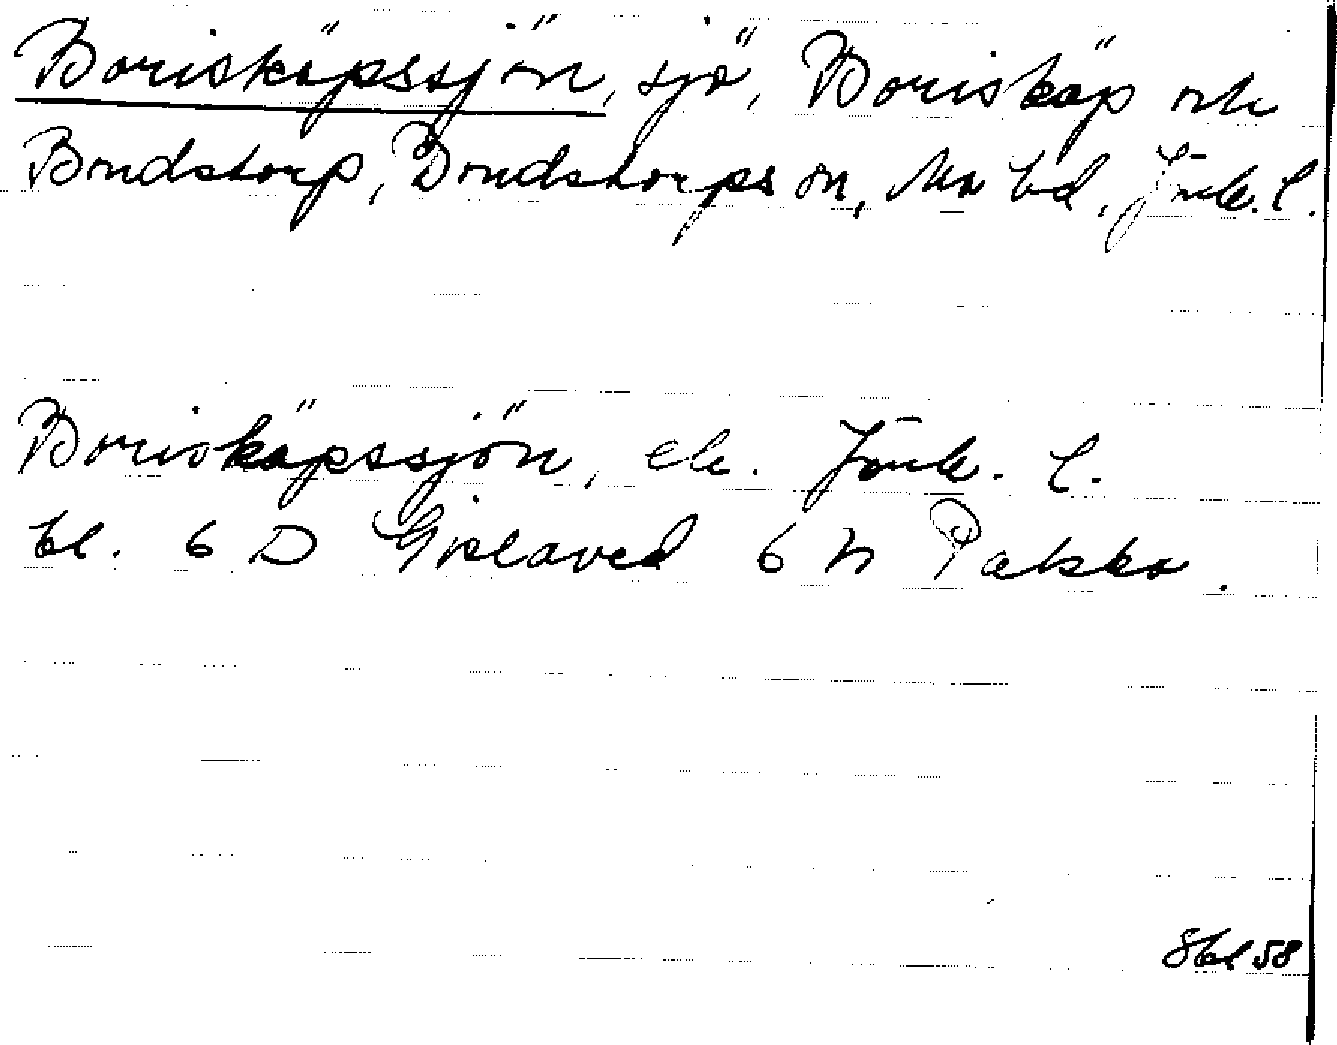 Boriskäpssjön, sjö, Boriskäp och
Bondstorp, Bondstorps sn, Mo hd, Jönk. l.
Boriskäpssjön, ek. Jönk. l.
bl. 6 D Gislaved 6 h Pakka.
8bl 58